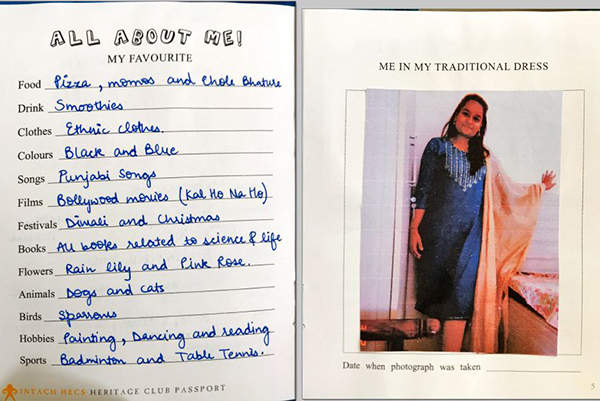 ALL ABOUT ME!
MY FAVOURITE
Food Pizza, momos and Chole Bhature
Drink Smoothies
Clothes Ethnic clothes.
Colours Black and Blue
Songs Punjabi Songs
Films Bollywood movies (Kal Ho Na Ho)
Festivals Diwali and Christmas
Books All books related to science & life
Flowers Rain lily and Pink Rose.
Animals Dogs and cats
Birds Sparrows
Hobbies Painting, Dancing and reading
Sports Badminton and Table Tennis.
INTACH HECS HERITAGE CLUB PASSPORT
ME IN MY TRADITIONAL DRESS
Date when photograph was taken
5